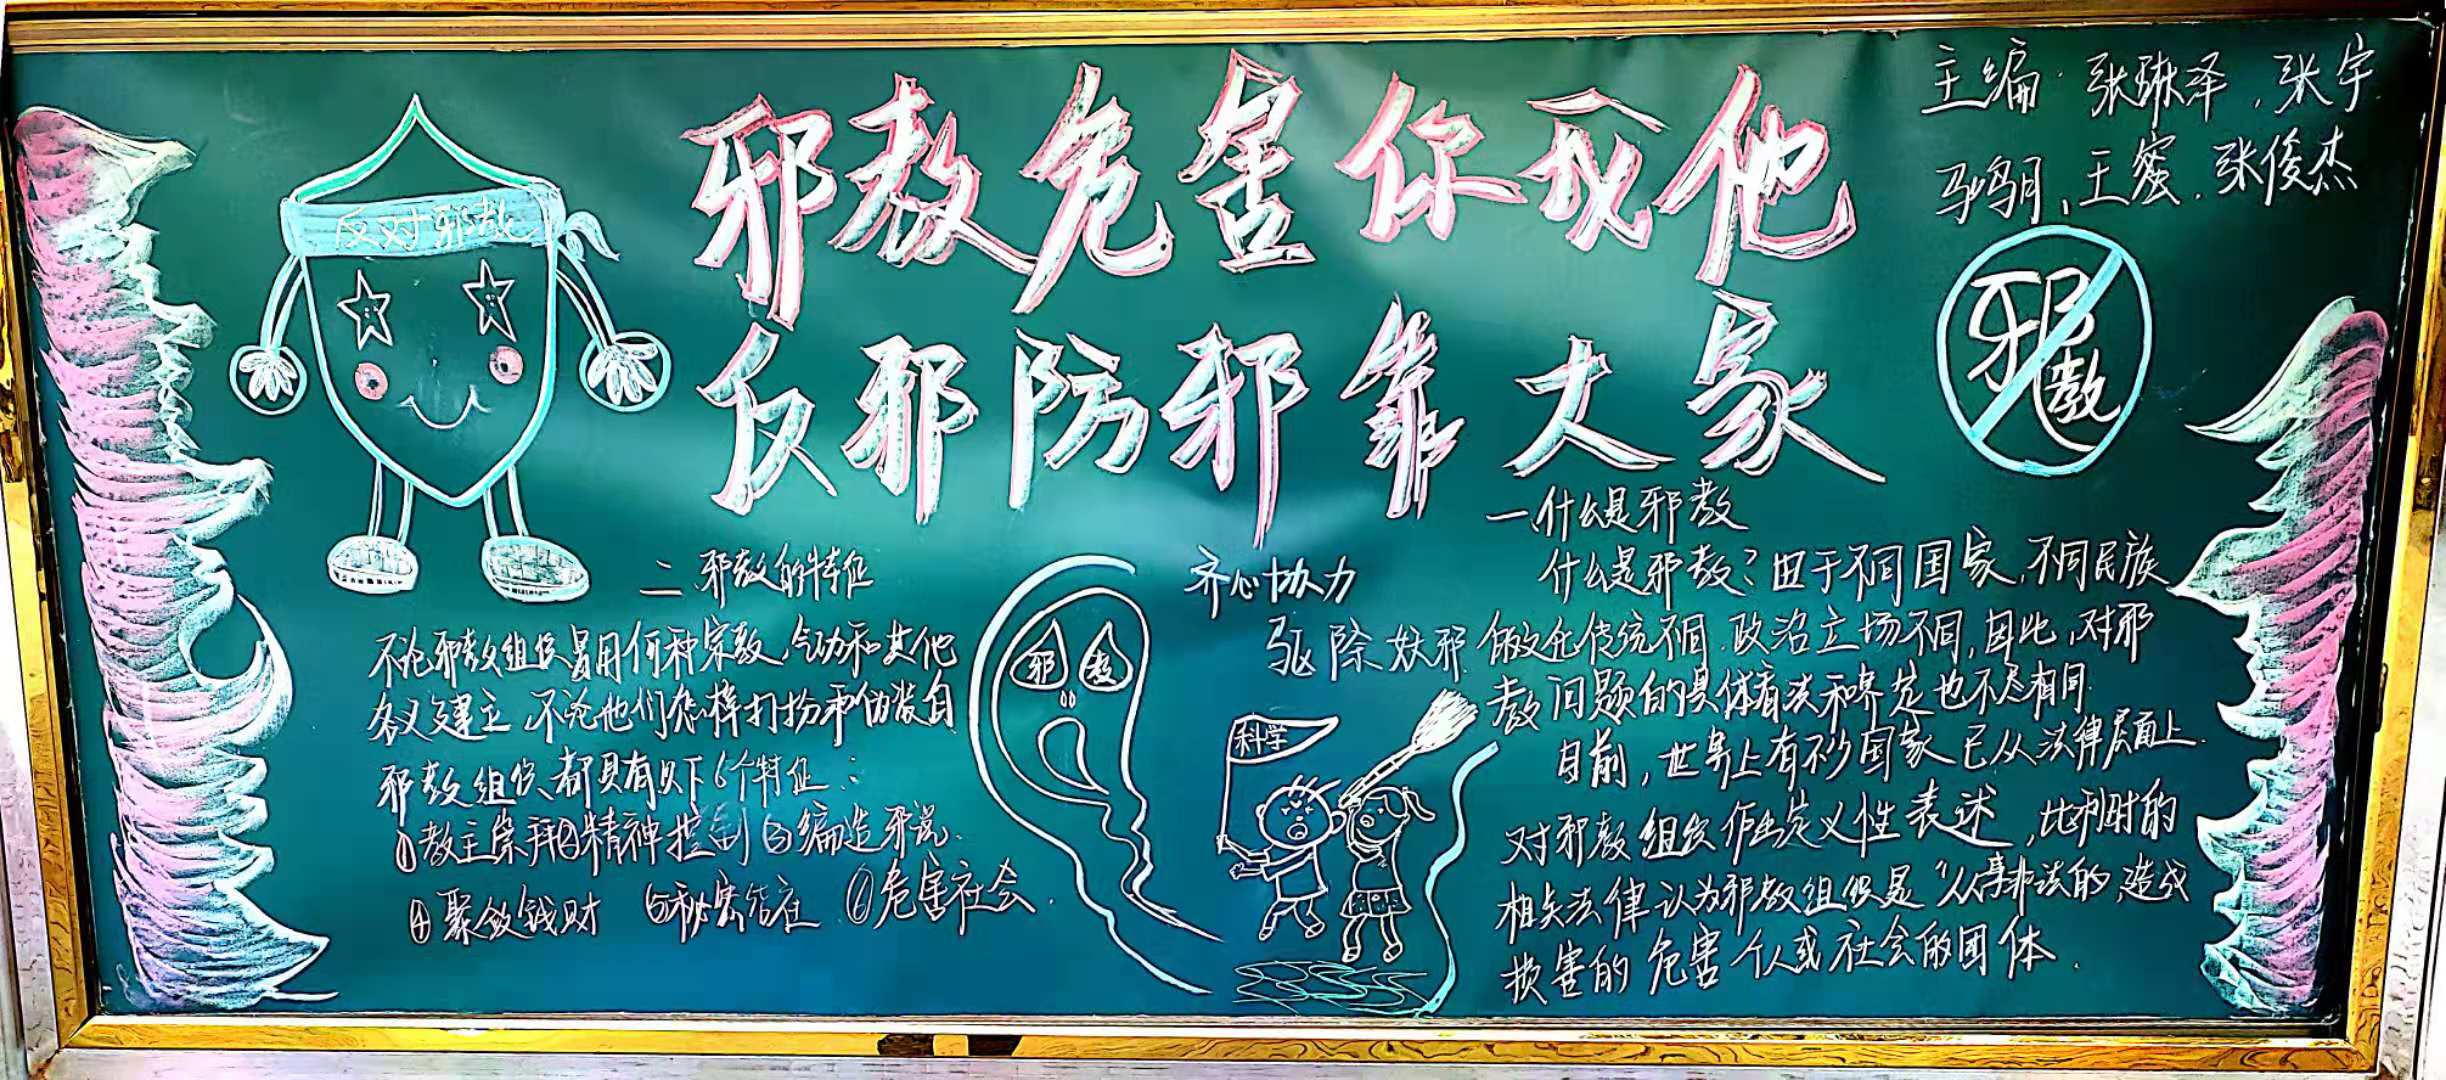 邪教危害你我他
反邪防邪靠大家
主编 张琳泽、张宇
王蜜、张俊杰
反对邪教
邪教
一、什么是邪教
什么是邪教?由于不同国家,不同民族
的文化传统不同,政治立场不同,因此,对邪
教问题的具体看法和界定也不尽相同.
目前,世界上有不少国家已从法律层面上
对邪教组织作出定义性表述,比利时的
相关法律认为邪教组织是“从事非法的,造成
损害的危害个人或社会的团体.
二、邪教的特征
不论邪教组织冒用何种宗教、气功和其他
名义建立,不论他们怎样打扮和伪装自
邪教组织都具有以下6个特征:
①教主崇拜②精神控制③编造邪说.
④聚敛钱财 ⑤秘密结社 ⑥危害社会.
邪 教
齐心协力
驱除妖邪
科学